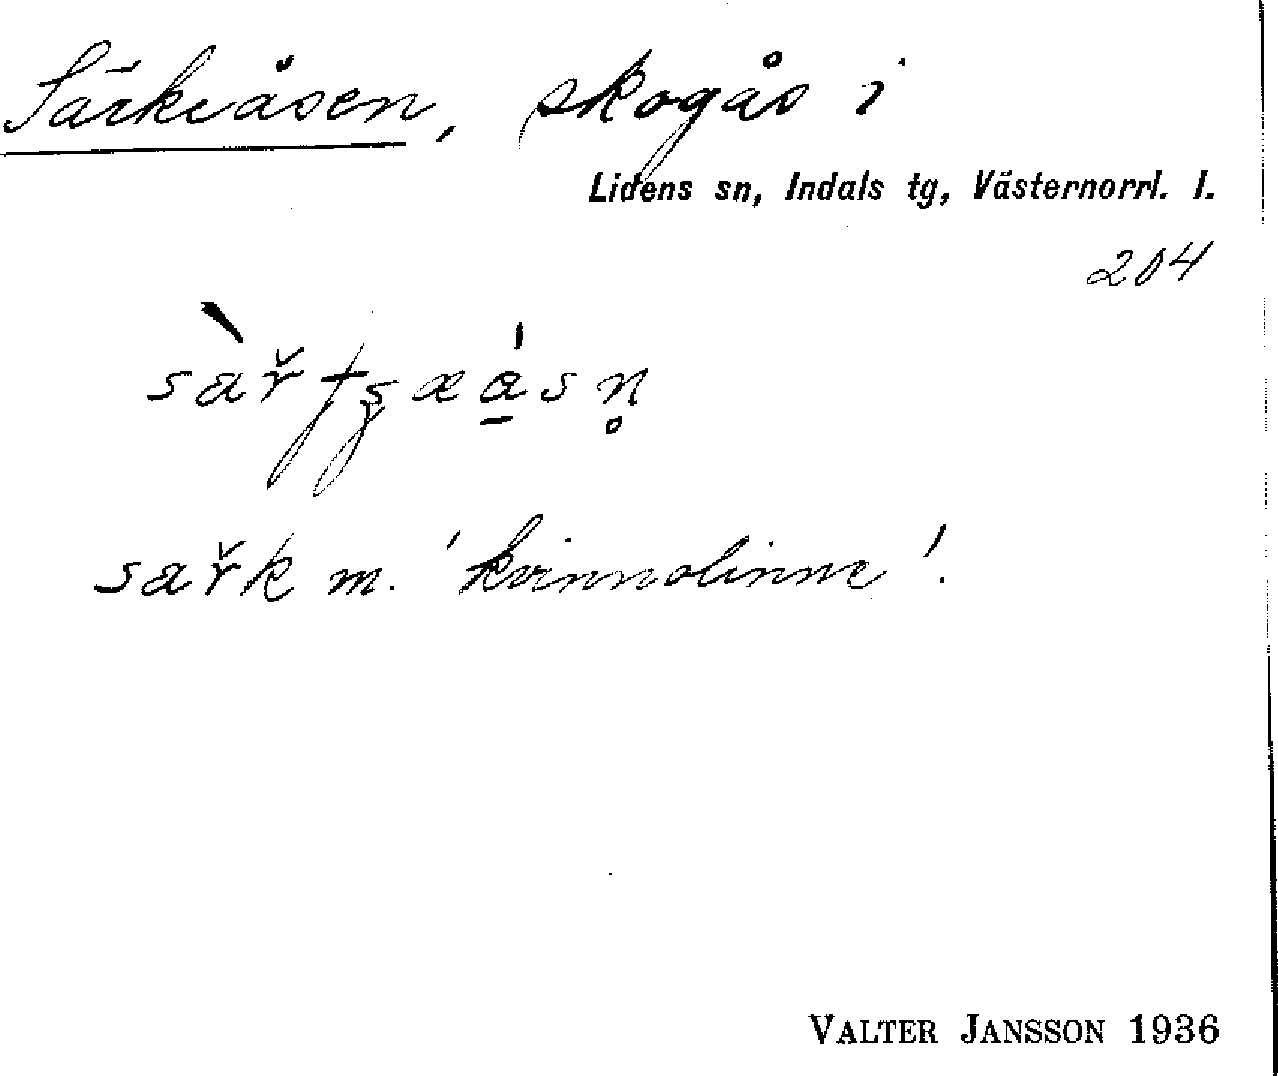 Särkeåsen, skogås i
Lidens sn, Indals tg, Västernorrl. l.
204
sar̆k m. 'kvinnolinne'.
VALTER JANSSON 1936